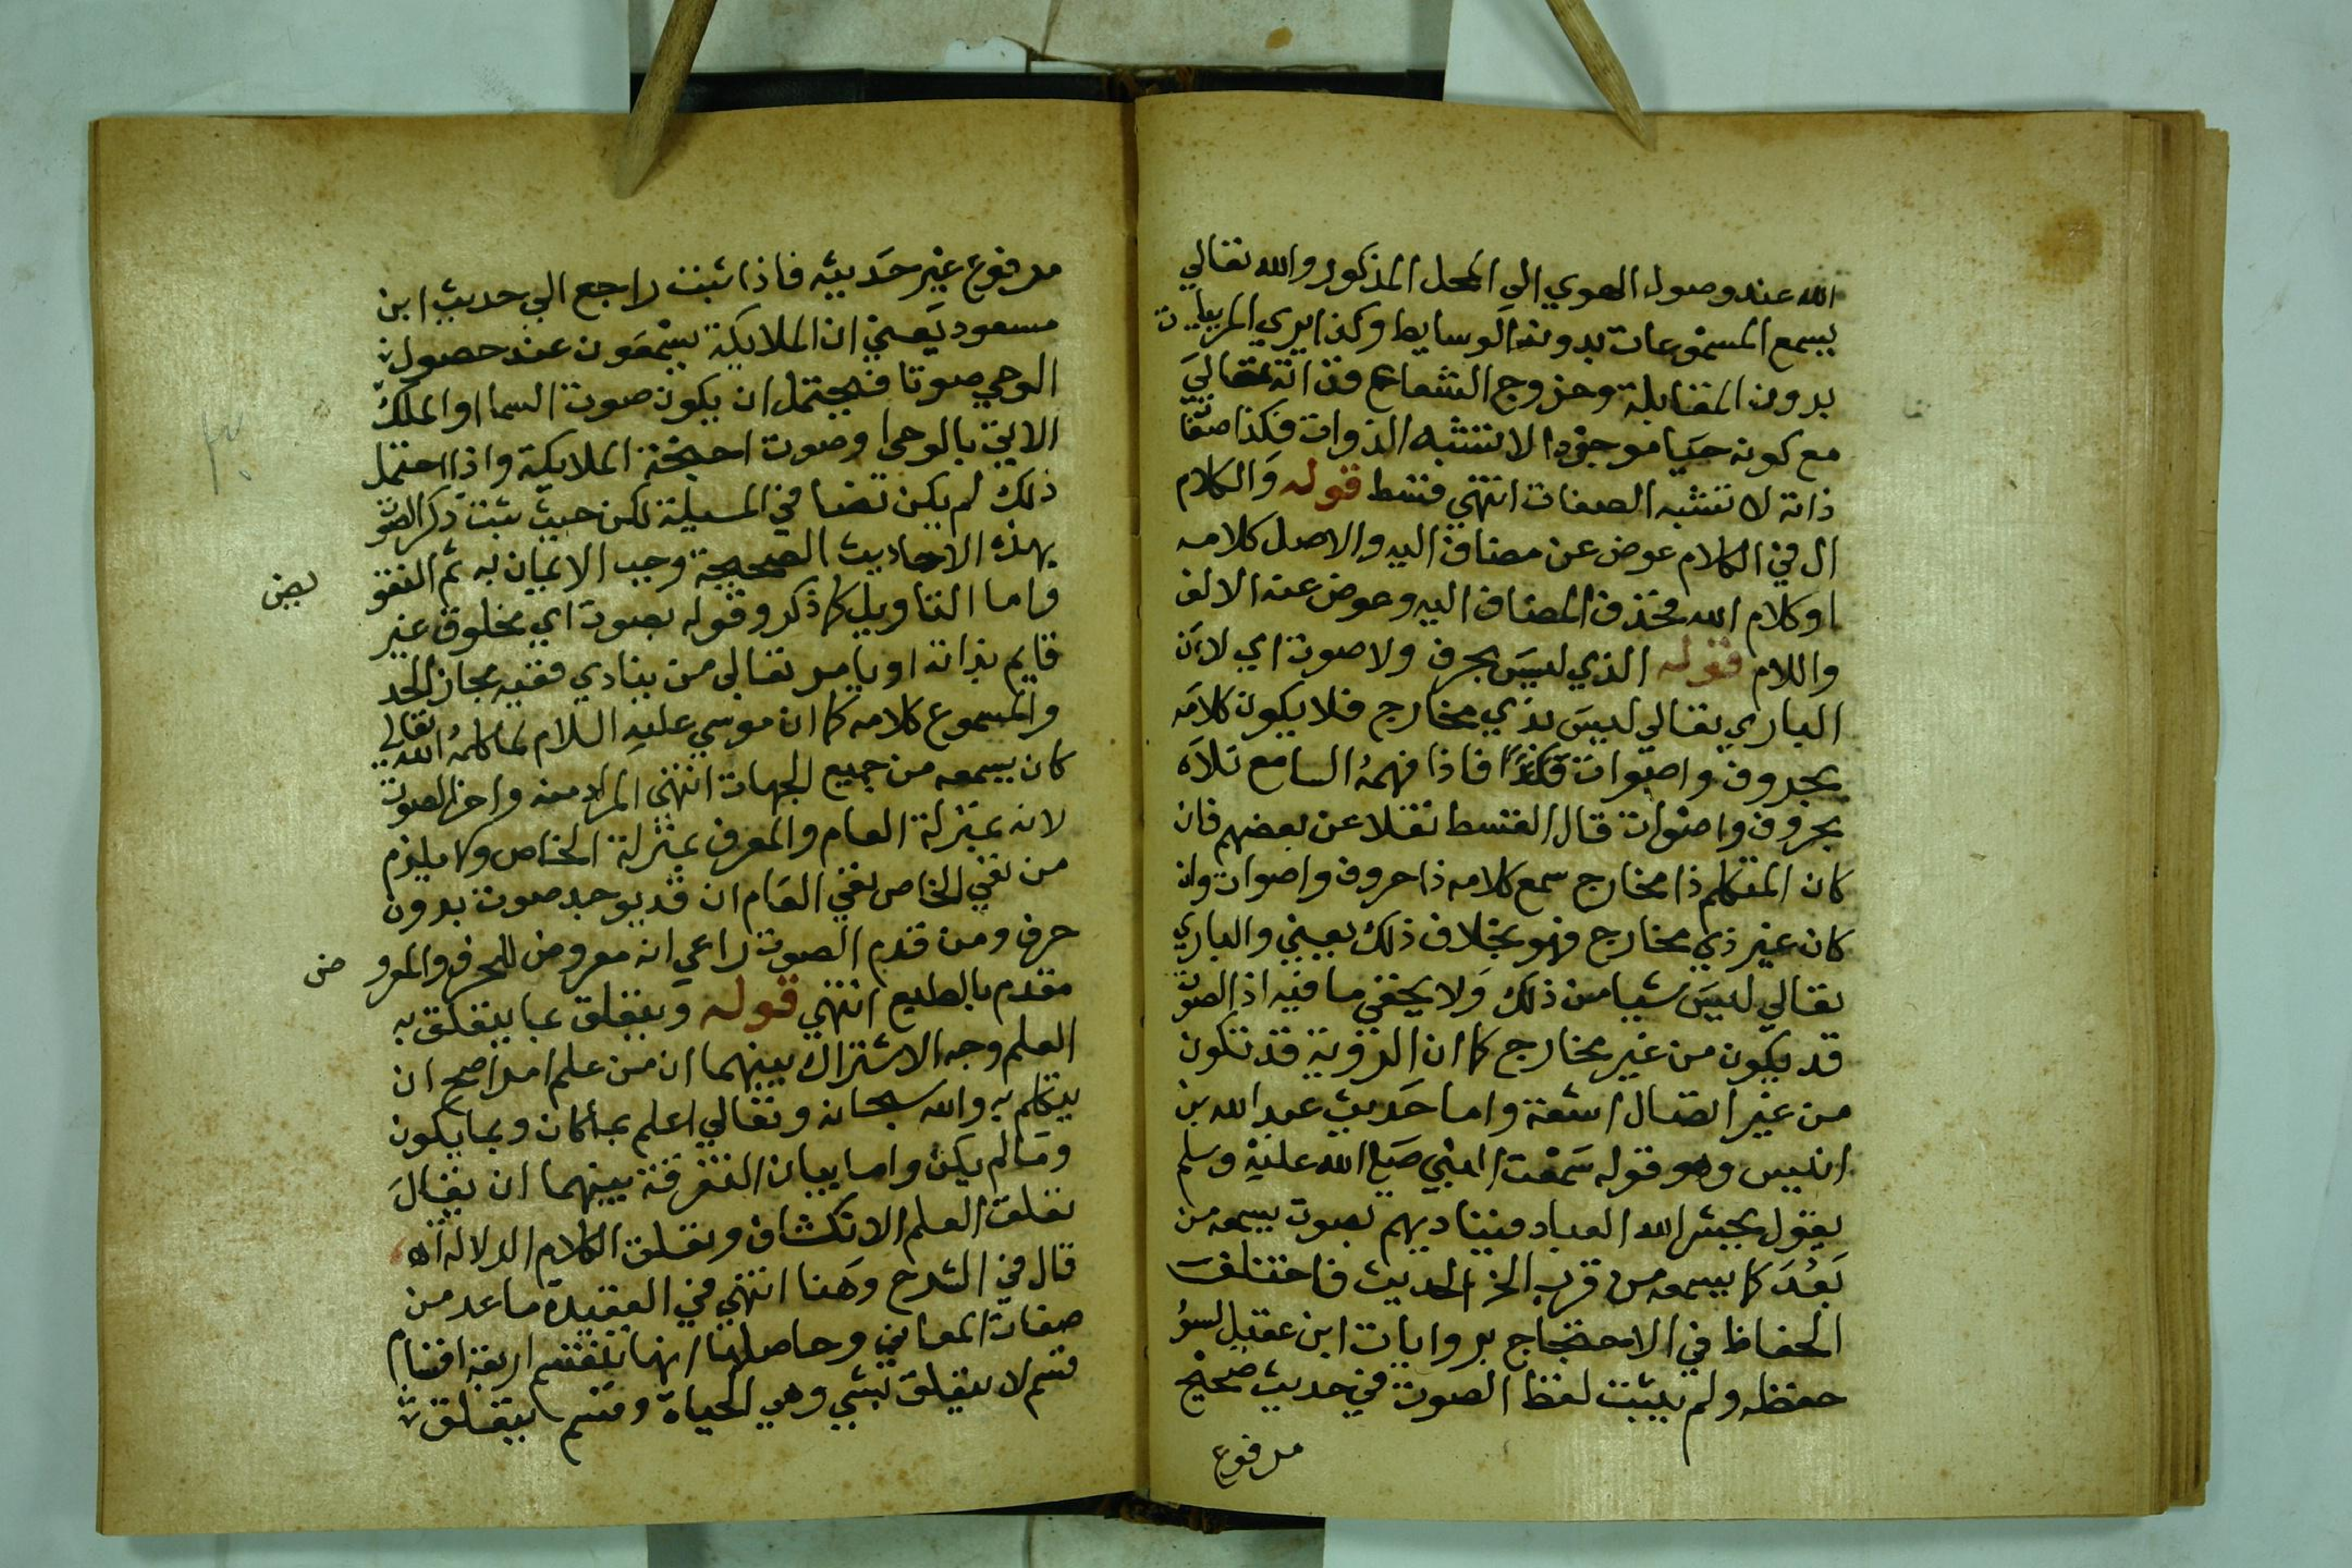 الله عند وصول الهوي الي المحل المذكور والله تعالي
يسمع المسموعات بدون الوسايط وكذا يري المرييات
بدون المقابلة وخروج الشعاع فذاته تعالي
مع كونه حيا موجودا لا تشبه الذوات فكذا صفا
ذاته لا تشبه الصفات انتهي قسط قوله والكلام
ال في الكلام عوض عن مضاف اليه والاصل كلامه
او كلام الله فحذف المضاف اليه وعوض عنه الالف
واللام قوله الذي ليس بحرف ولا صوت اي لان
الباري تعالي ليس بذي مخارج فلا يكون كلامه
بحروف واصوات فاذا فهمه السامع تلاه
بحروف واصوات قال القسط نقلا عن بعضهم فان
كان المتكلم ذا مخارج سمع كلامه ذا حروف واصوات وان
كان غير ذي مخارج فهو بخلاف ذلك يعني والباري
تعالي ليس شيا من ذلك ولا يخفي ما فيه اذ الصوت
قد يكون من غير مخارج كما ان الروية قد تكون
من غير اتصال اشعة واما حديث عبد الله بن
انيس وهو قوله سمعت النبي صلي الله عليه وسلم
يقول يحشر الله العباد فيناديهم بصوت يسمعه من
بعد كما يسمعه من قرب الخ الحديث فاختلف
الحفاظ في الاحتجاج بروايات ابن عقيل لسؤ
حفظه ولم يثبت لفظ الصوت في حديث صحيح
مرفوع
مرفوع غير حديثه فاذا ثبت راجع الي حديث ابن
مسعود يعني ان الملايكة يسمعون عند حصول
الوحي صوتا فيحتمل ان يكون صوت السما او الملك
الاتي بالوحي او صوت اجنحة الملايكة واذا احتمل
ذلك لم يكن نصا في المسيلة لكن حيث ثبت ذكر الصوت
بهذه الاحاديث الصحيحة وجب الايمان به ثم التفو
يض
واما التاويل كما ذكر وقوله بصوت اي مخلوق غير
قايم بذاته او يامر تعالي من ينادي ففيه مجاز الحذ
والمسموع كلامه كما ان موسي عليه السلام لما كلمه الله تعالي
كان يسمعه من جميع الجهات انتهي المراد منه واخر الصوت
لانه بمنزلة العام والحرف بمنزلة الخاص ولا يلزم
من نفي الخاص نفي العام ان قد يوجد صوت بدون
حرف ومن قدم الصوت راعي انه معروض للحرف والمعرو
ض
مقدم بالطبع انتهي قوله ويتعلق بما يتعلق به
العلم وجه الاشتراك بينهما ان من علم امرا صح ان
يتكلم به والله سبحانه وتعالي اعلم بما كان وبما يكون
وما لم يكن واما بيان التفرقة بينهما ان يقال
تعلق العلم الانكشاف وتعلق الكلام الدلالة اه
قال في الشرح وهنا انتهي في العقيدة ما عد من
صفات المعاني وحاصلها انها تنقسم اربعة اقسام
قسم لا يتعلق بشي وهي الحياة وقسم يتعلق